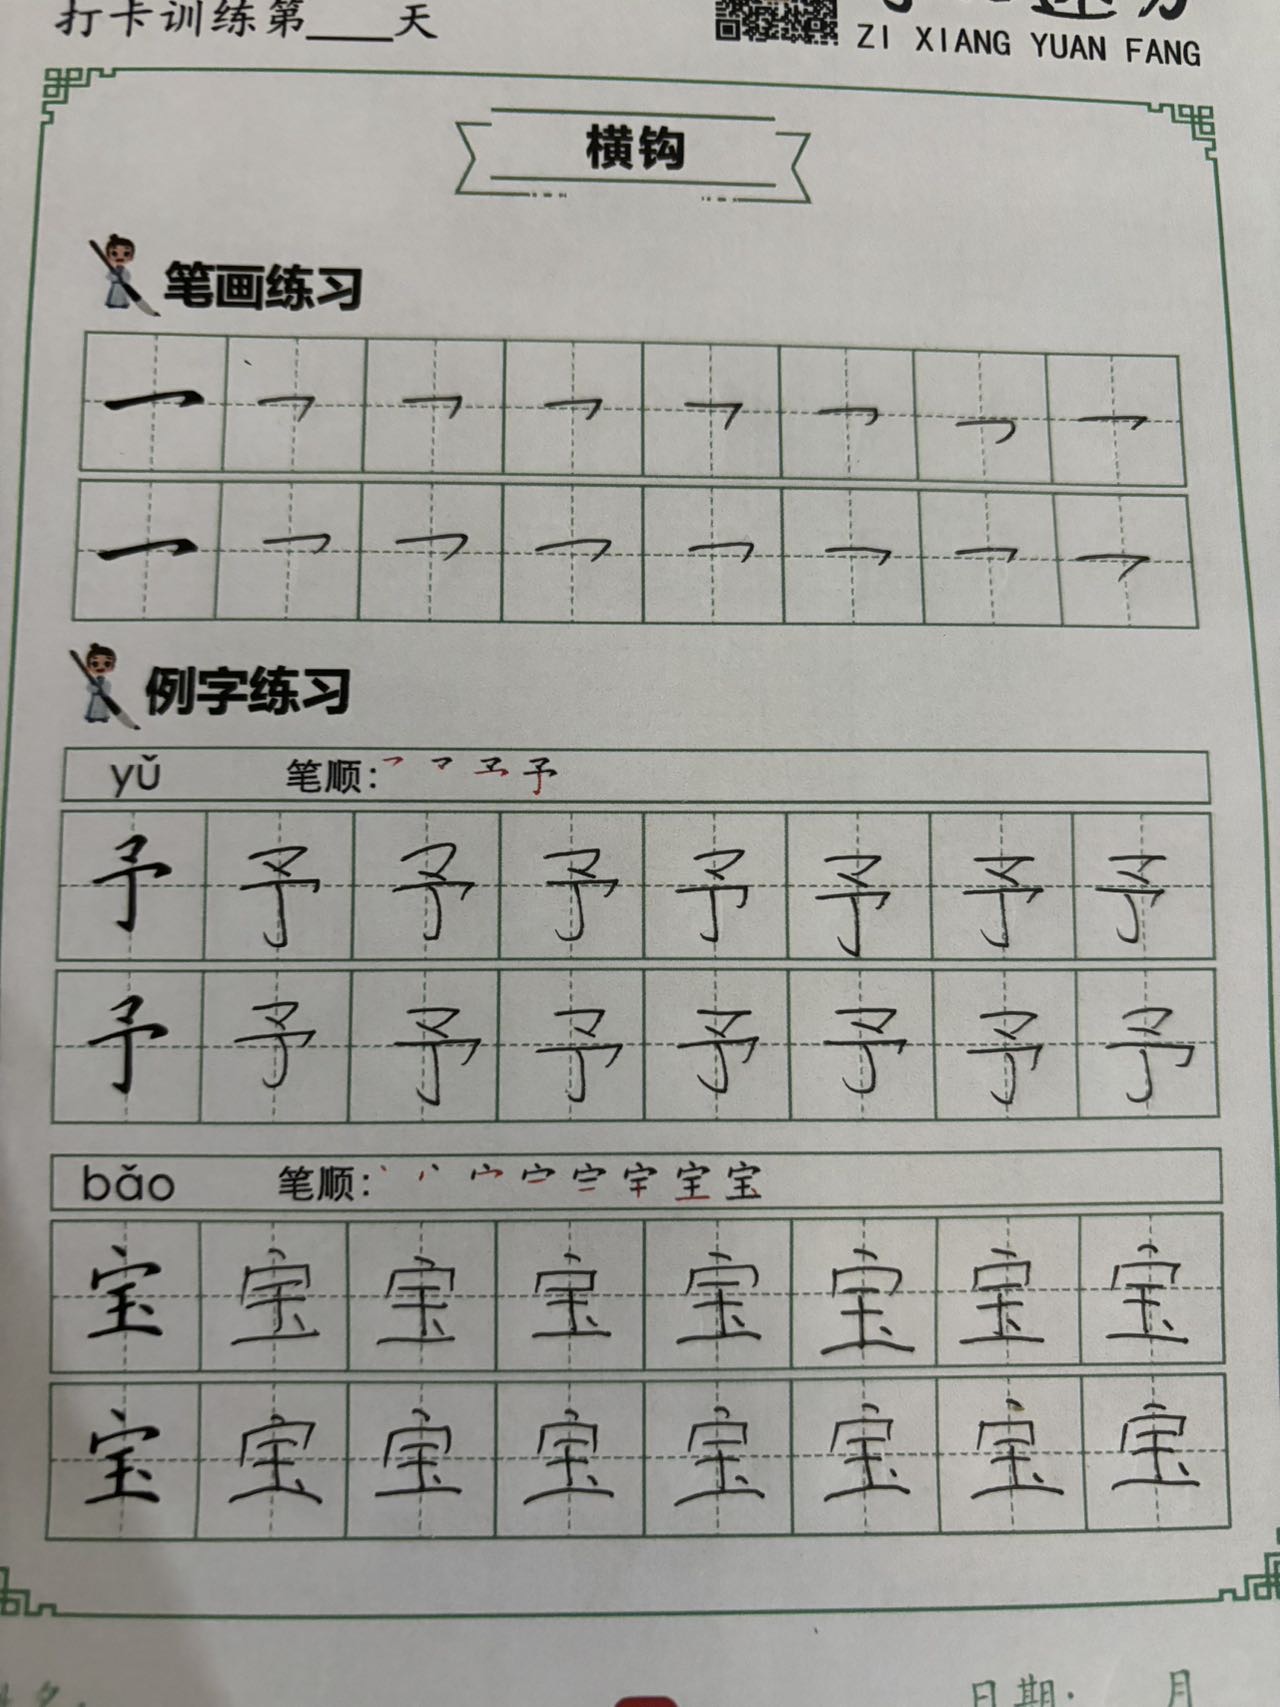 打卡训练第____天
ZI XIANG YUAN FANG
横钩
笔画练习
例字练习
yǔ 笔顺: 予
予 予 予 予 予 予 予 予
予 予 予 予 予 予 予 予
bǎo 笔顺: 宝
宝 宝 宝 宝 宝 宝 宝 宝
宝 宝 宝 宝 宝 宝 宝 宝
日期: 月